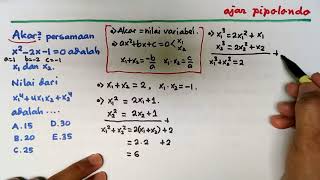 ajar pipolondo
Akar² persamaan
x²-2x-1=0 adalah
a=1 b=-2 c=-1
x₁ dan x₂.
Nilai dari
x₁⁴+4x₁x₂+x₂⁴
adalah....
A. 15 D. 30
B. 20 E. 35
C. 25
▹ Akar = nilai variabel.
▹ ax²+bx+c=0 < x₁ x₂
x₁+x₂ = -b/a x₁.x₂ = c/a
▹ x₁+x₂ = 2, x₁.x₂ = -1.
▹ x₁² = 2x₁+1.
x₂² = 2x₂+1
+
x₁²+x₂² = 2(x₁+x₂)+2
= 2.2 +2
= 6
▹ x₁³ = 2x₁²+x₁
x₂³ = 2x₂²+x₂
+
x₁³+x₂³ = 2